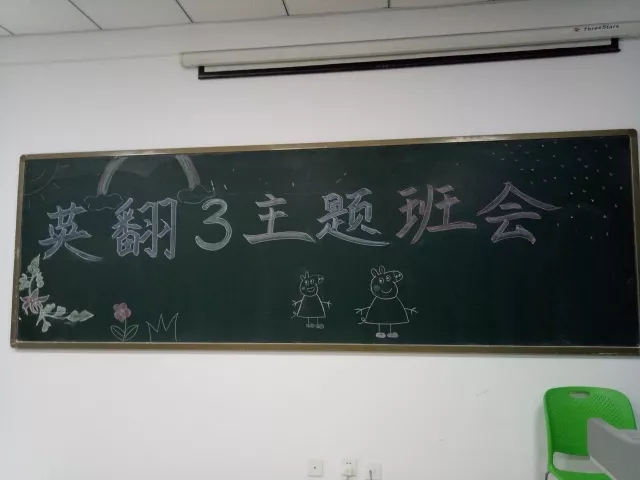 ThreeStars
英翻3主题班会